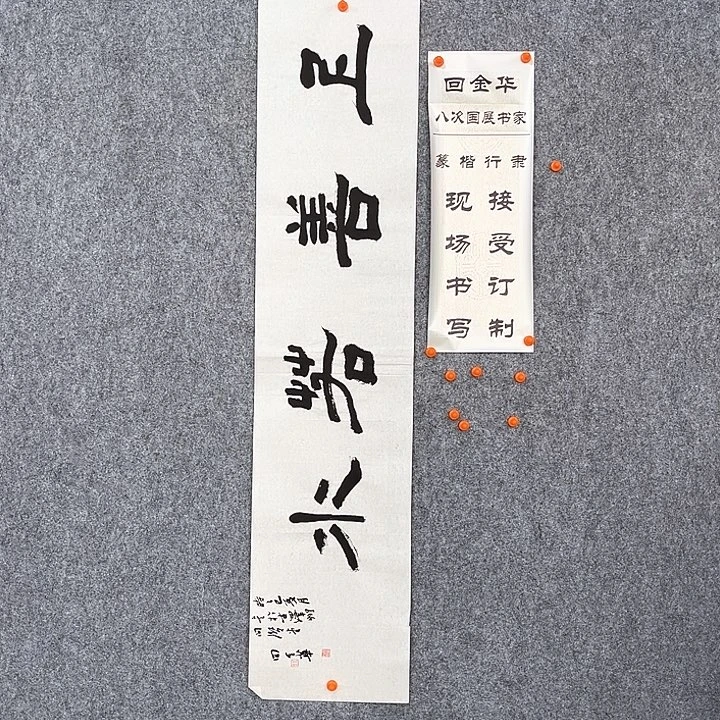 上善若水
回金华
八次国展书家
篆楷行隶
接受订制
现场书写